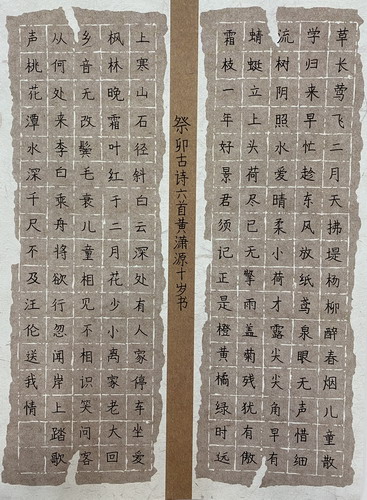 草长莺飞二月天拂堤杨柳醉春烟儿童散
学归来早忙趁东风放纸鸢泉眼无声惜细
流树阴照水爱晴柔小荷才露尖尖角早有
蜻蜓立上头荷尽已无擎雨盖菊残犹有傲
霜枝一年好景君须记正是橙黄橘绿时远
上寒山石径斜白云深处有人家停车坐爱
枫林晚霜叶红于二月花少小离家老大回
乡音无改鬓毛衰儿童相见不相识笑问客
从何处来李白乘舟将欲行忽闻岸上踏歌
声桃花潭水深千尺不及汪伦送我情
祭卯古诗六首黄潇源十岁书